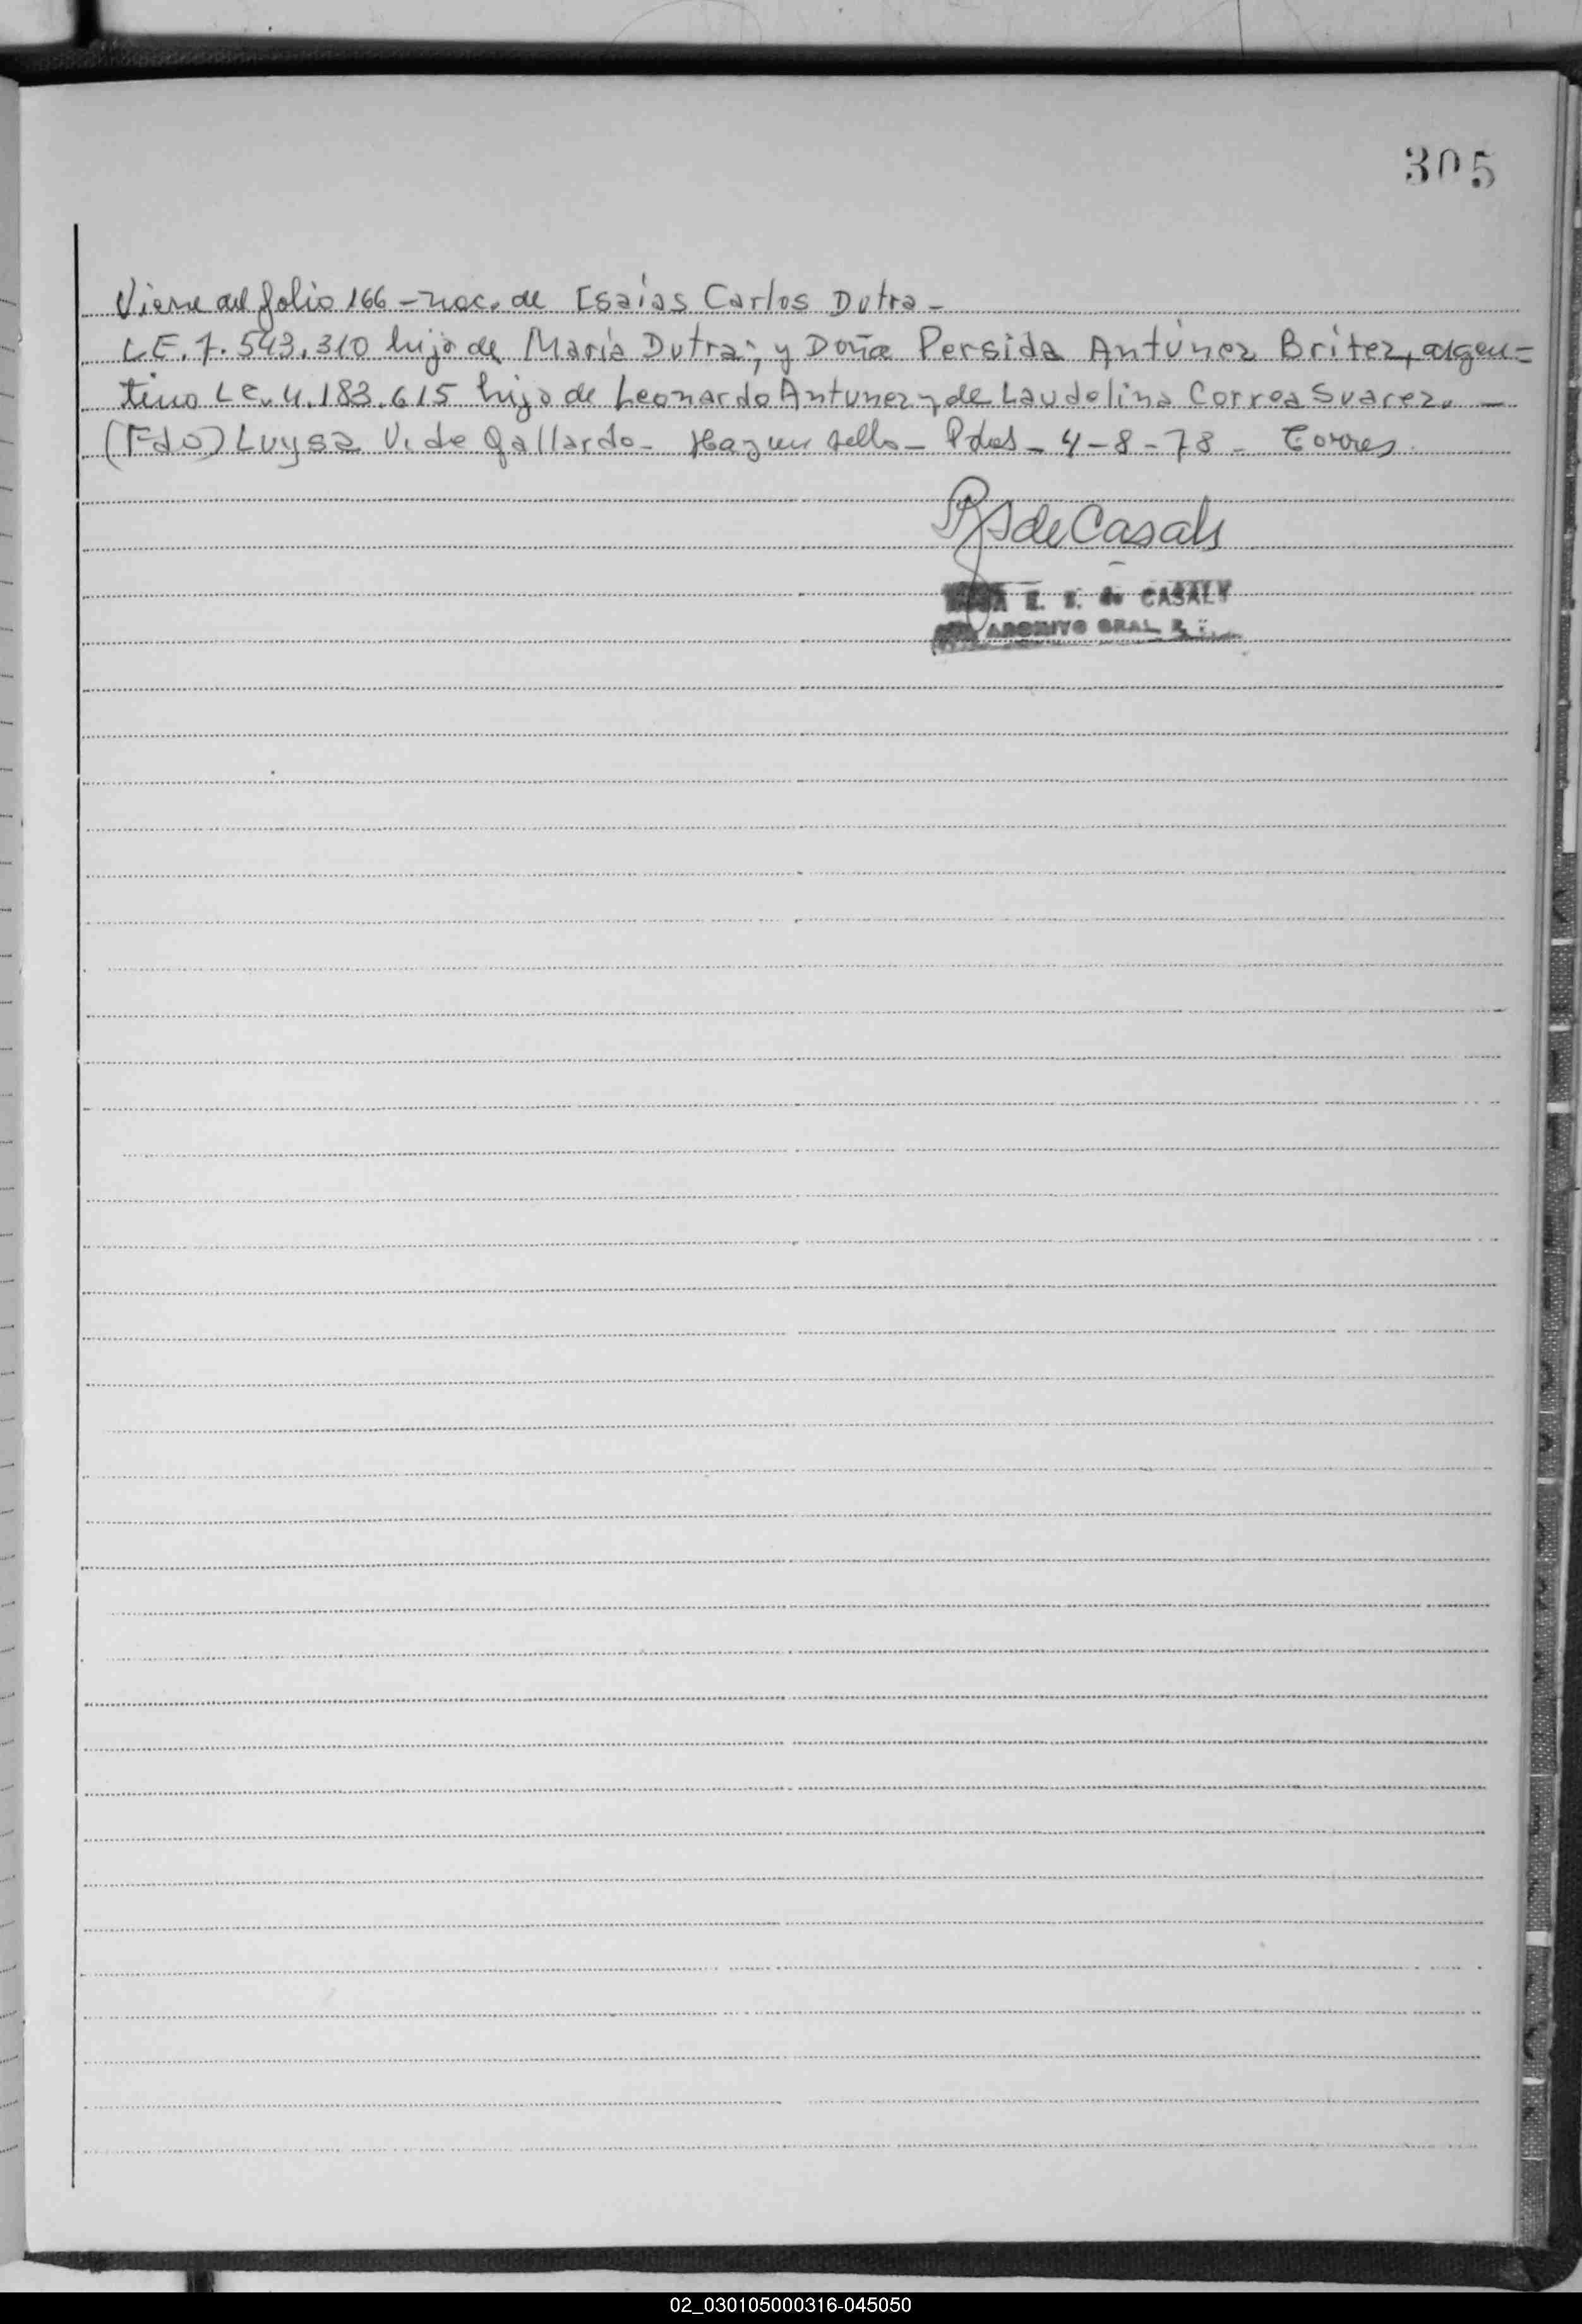 305
Viene del folio 166 - nac. de Isaías Carlos Dutra -
L.E. 7.543.310 hijo de María Dutra; y Doña Persida Antúnez Britez, argen=
tina LC. 4.183.615 hija de Leonardo Antunez y de Laudelina Correa Suarez. -
(Fdo) Luysa V. de Gallardo - Hay un sello - Pdas - 4-8-78 - Torres.
de Casals
E. S. de CASALS
ARCHIVO GRAL.
02_030105000316-045050